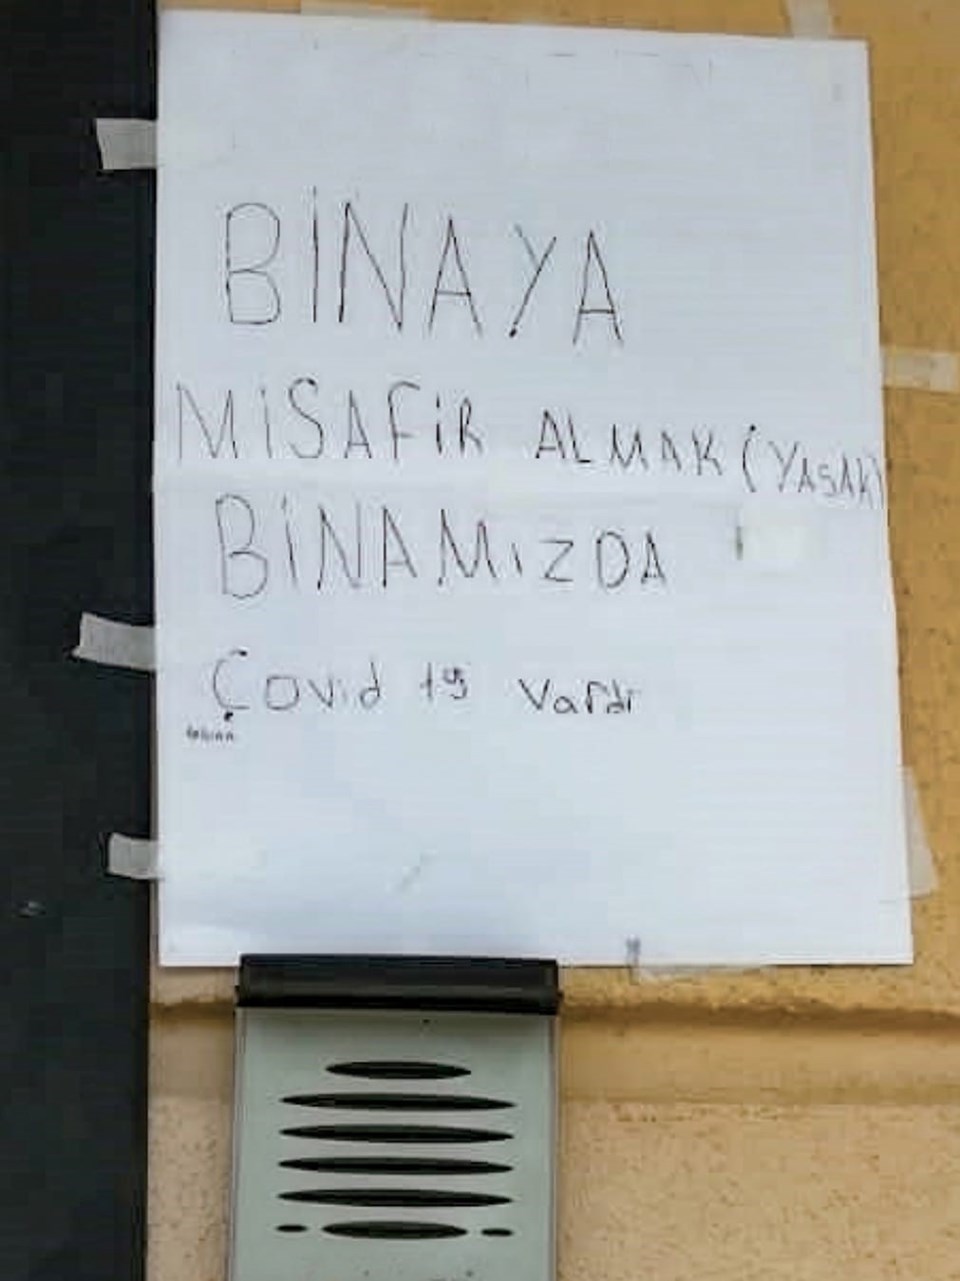 BİNAYA
MİSAFİR ALMAK (YASAK)
BİNAMıZDA
Çovid 19 vardı